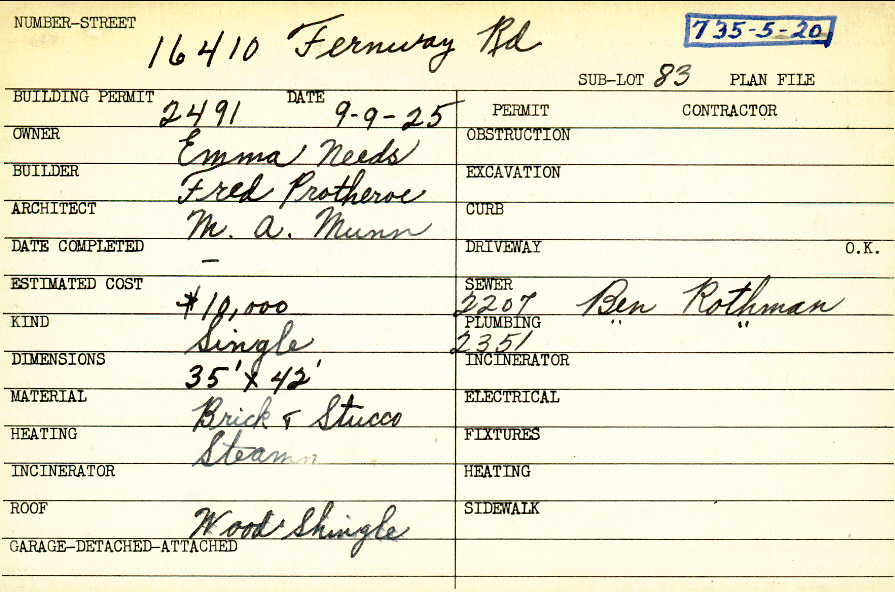 NUMBER-STREET 16410 Fernway Rd 735-5-20
SUB-LOT 83 PLAN FILE
BUILDING PERMIT 2491 DATE 9-9-25 PERMIT CONTRACTOR
OWNER Emma Needs OBSTRUCTION
BUILDER Fred Protheroe EXCAVATION
ARCHITECT M. A. Munn CURB
DATE COMPLETED – DRIVEWAY O.K.
ESTIMATED COST $10,000 SEWER 2207 Ben Rothman
KIND Single PLUMBING 2351 " "
DIMENSIONS 35' x 42' INCINERATOR
MATERIAL Brick & Stucco ELECTRICAL
HEATING Steam FIXTURES
INCINERATOR HEATING
ROOF Wood Shingle SIDEWALK
GARAGE-DETACHED-ATTACHED